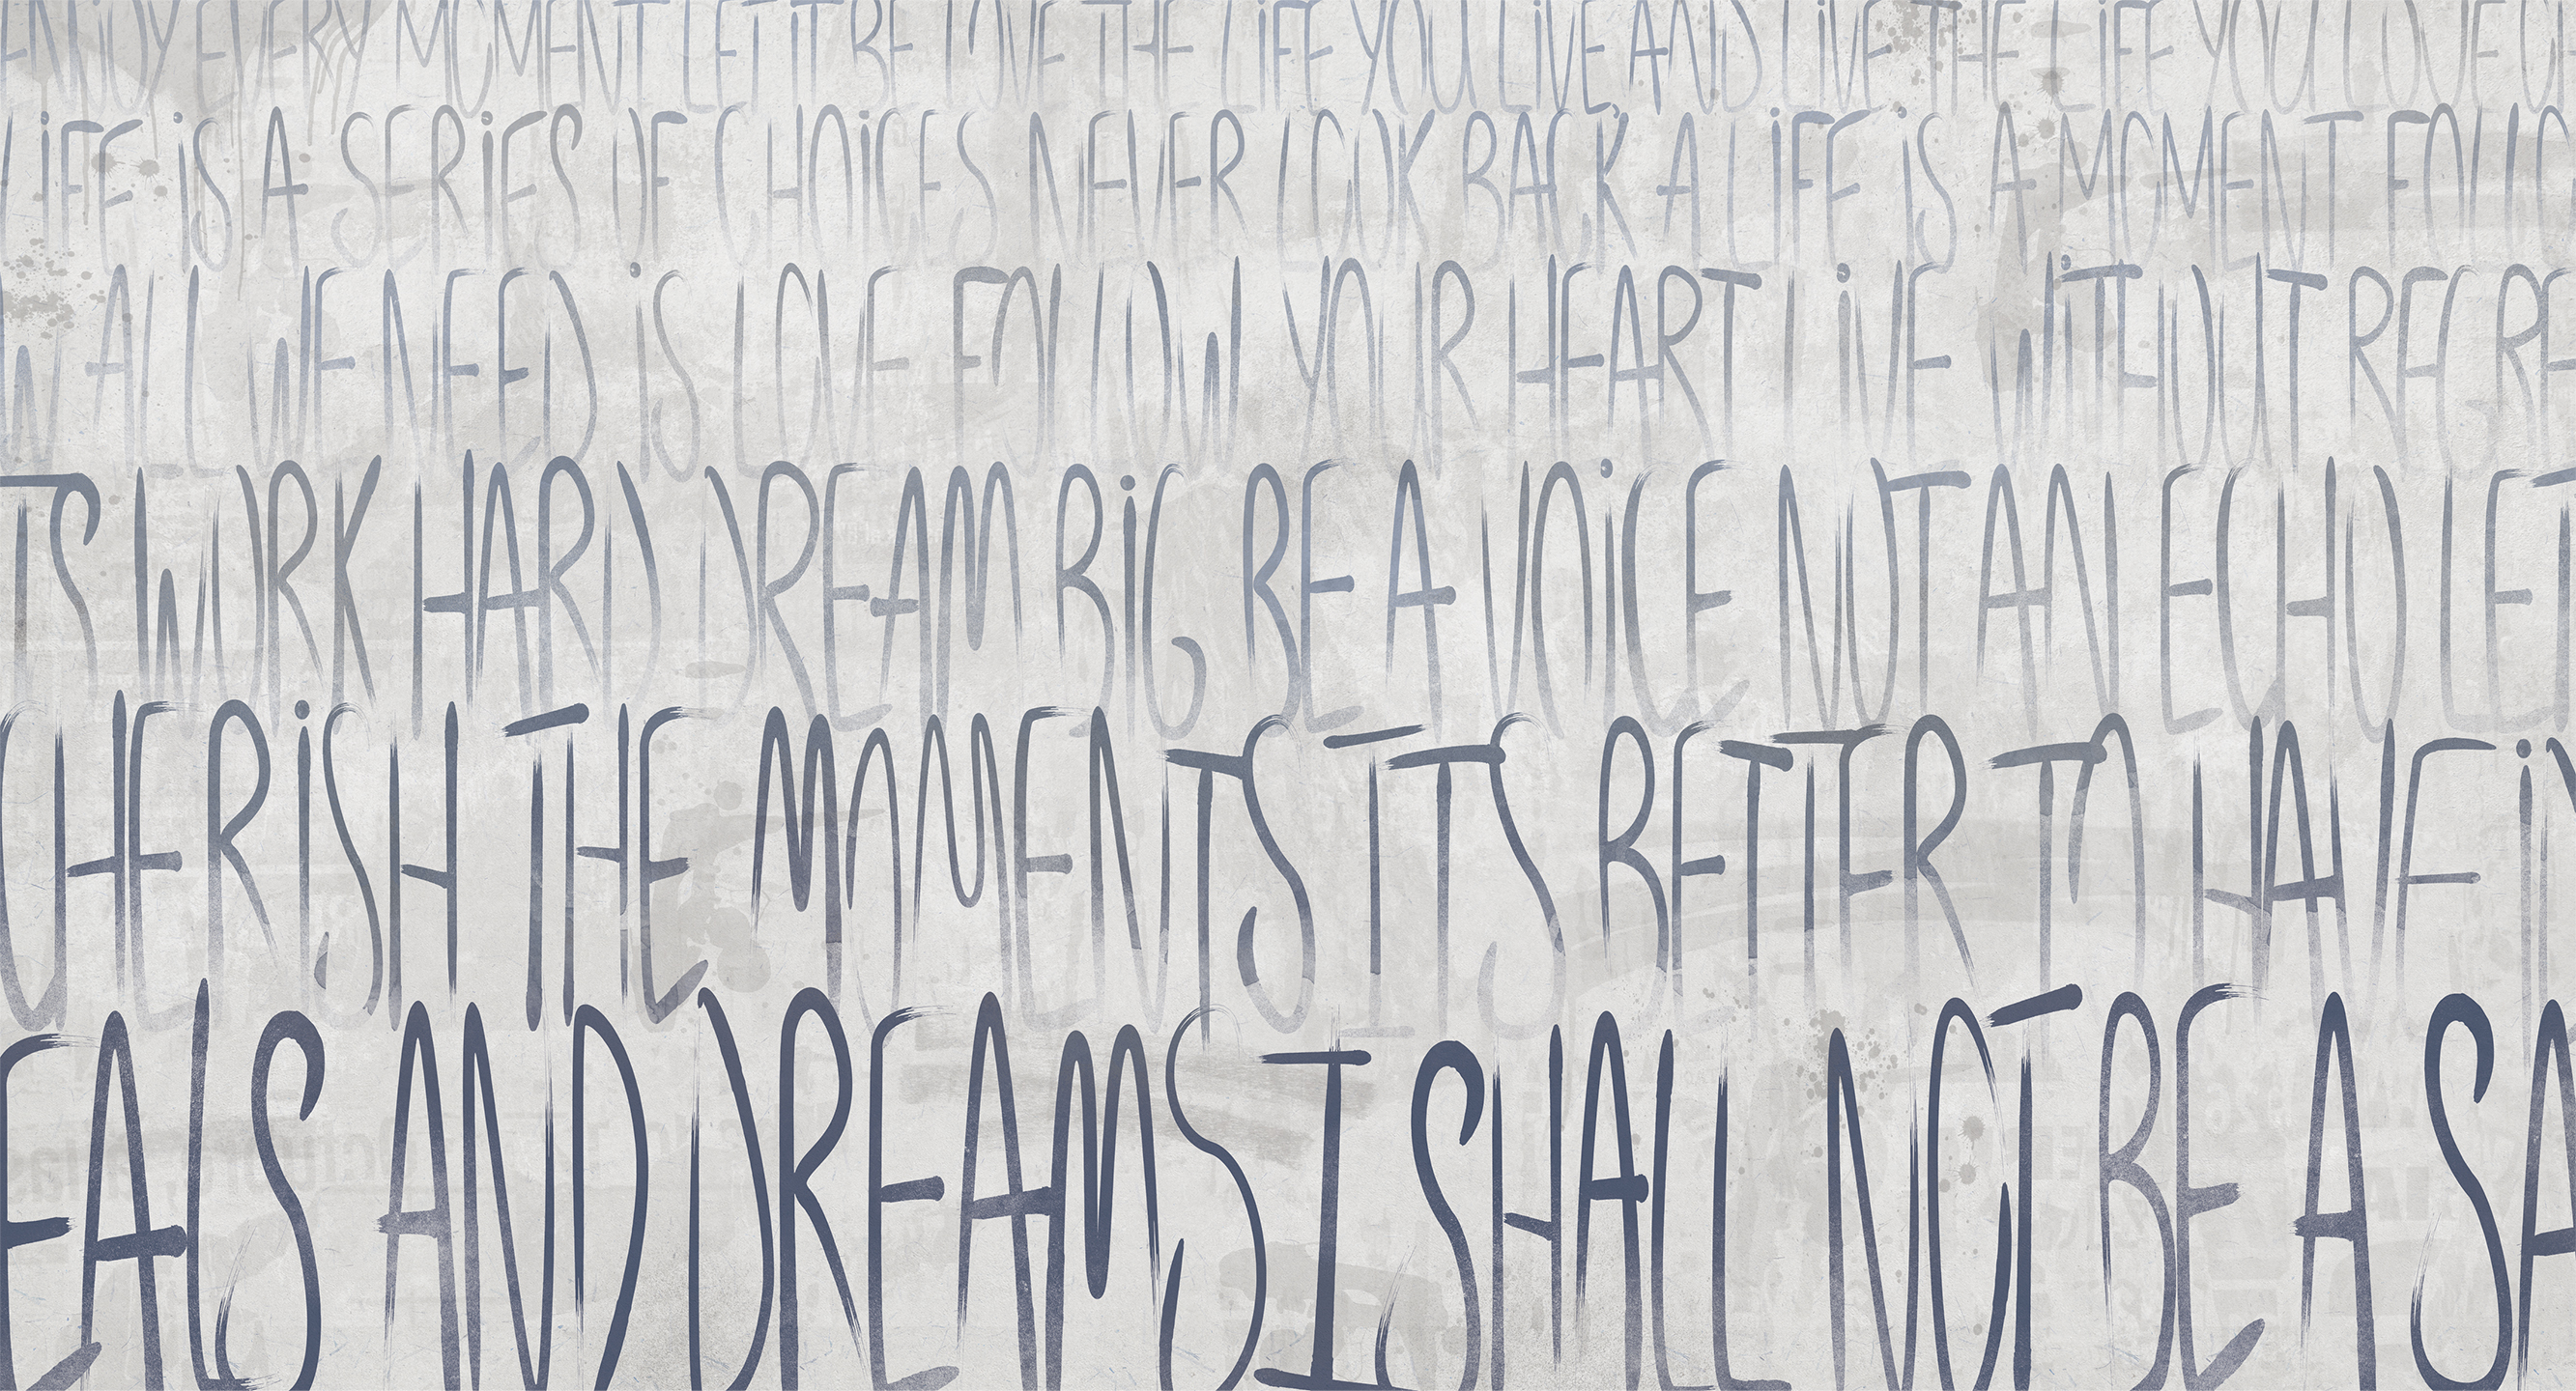 ENJOY EVERY MOMENT LET IT BE LOVE THE LiFE YOU LiVE, AND LiVE THE LiFE YOU LOVE
LiFE iS A SERiES OF CHOiCES NEVER LOOK BACK A LiFE iS A MOMENT FOLLO
W ALL WE NEED iS LOVE FOLLOW YOUR HEART LiVE WiTHOUT REGRE
TS WORK HARD DREAM BiG BE A VOiCE NOT AN ECHO LET
CHERiSH THE MOMENTS ITS BETTER TO HAVE iD
EALS AND DREAMS I SHALL NOT BE A SA